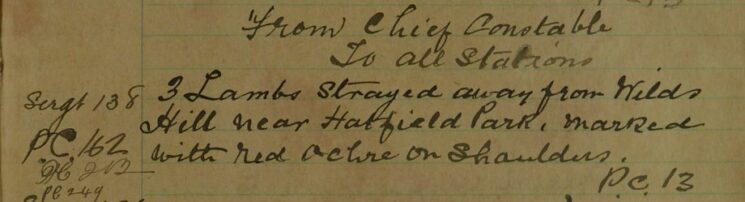 "From Chief Constable
To all Stations
Sergt 138
3 Lambs strayed away from Wilds
Hill near Hatfield Park, marked
P.C. 162
with red ochre on shoulders.
P.C. 213
P.C. 13
PC 249